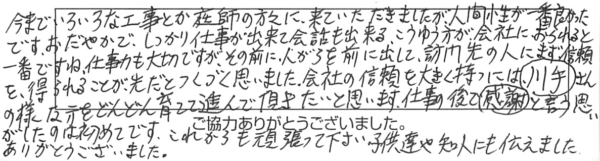 今までいろいろな工事とか 技師の方々に、来ていただきましたが人間性が一番良かった
です。おだやかで、しっかり仕事が出来て会話も出来る、こうゆう方が会社におられると
一番ですね、仕事力も大切ですがその前に、人がらを前に出して、訪問先の人にまず信頼
を、得られることが先だとつくづく思いました。会社の信頼を大きく持つには、川手さん
の様な方をどんどん育てて進んで頂きたいと思います。仕事の後で感謝と言う思い
がしたのは初めてです、これからも頑張って下さい 子供達や知人にも伝えました
ご協力ありがとうございました。
ありがとうございました。